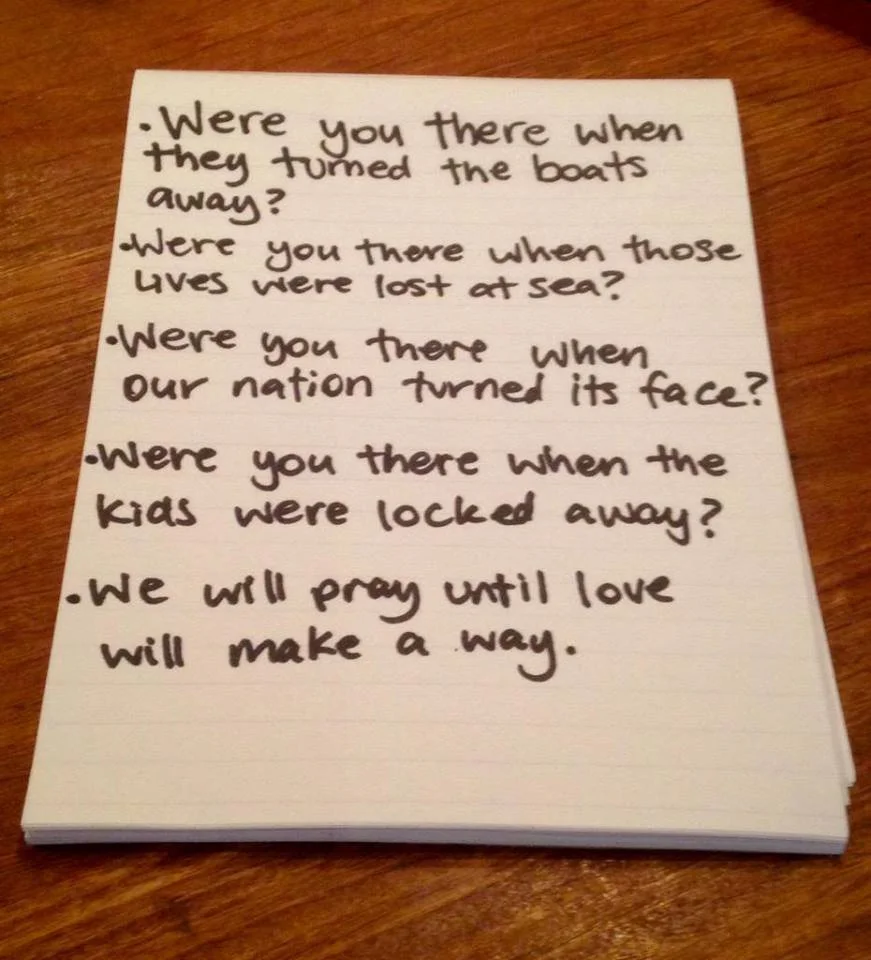 . Were you there when
they turned the boats
away?
• Were you there when those
lives were lost at sea?
• Were you there when
our nation turned its face?
• Were you there when the
kids were locked away?
• We will pray until love
will make a way.